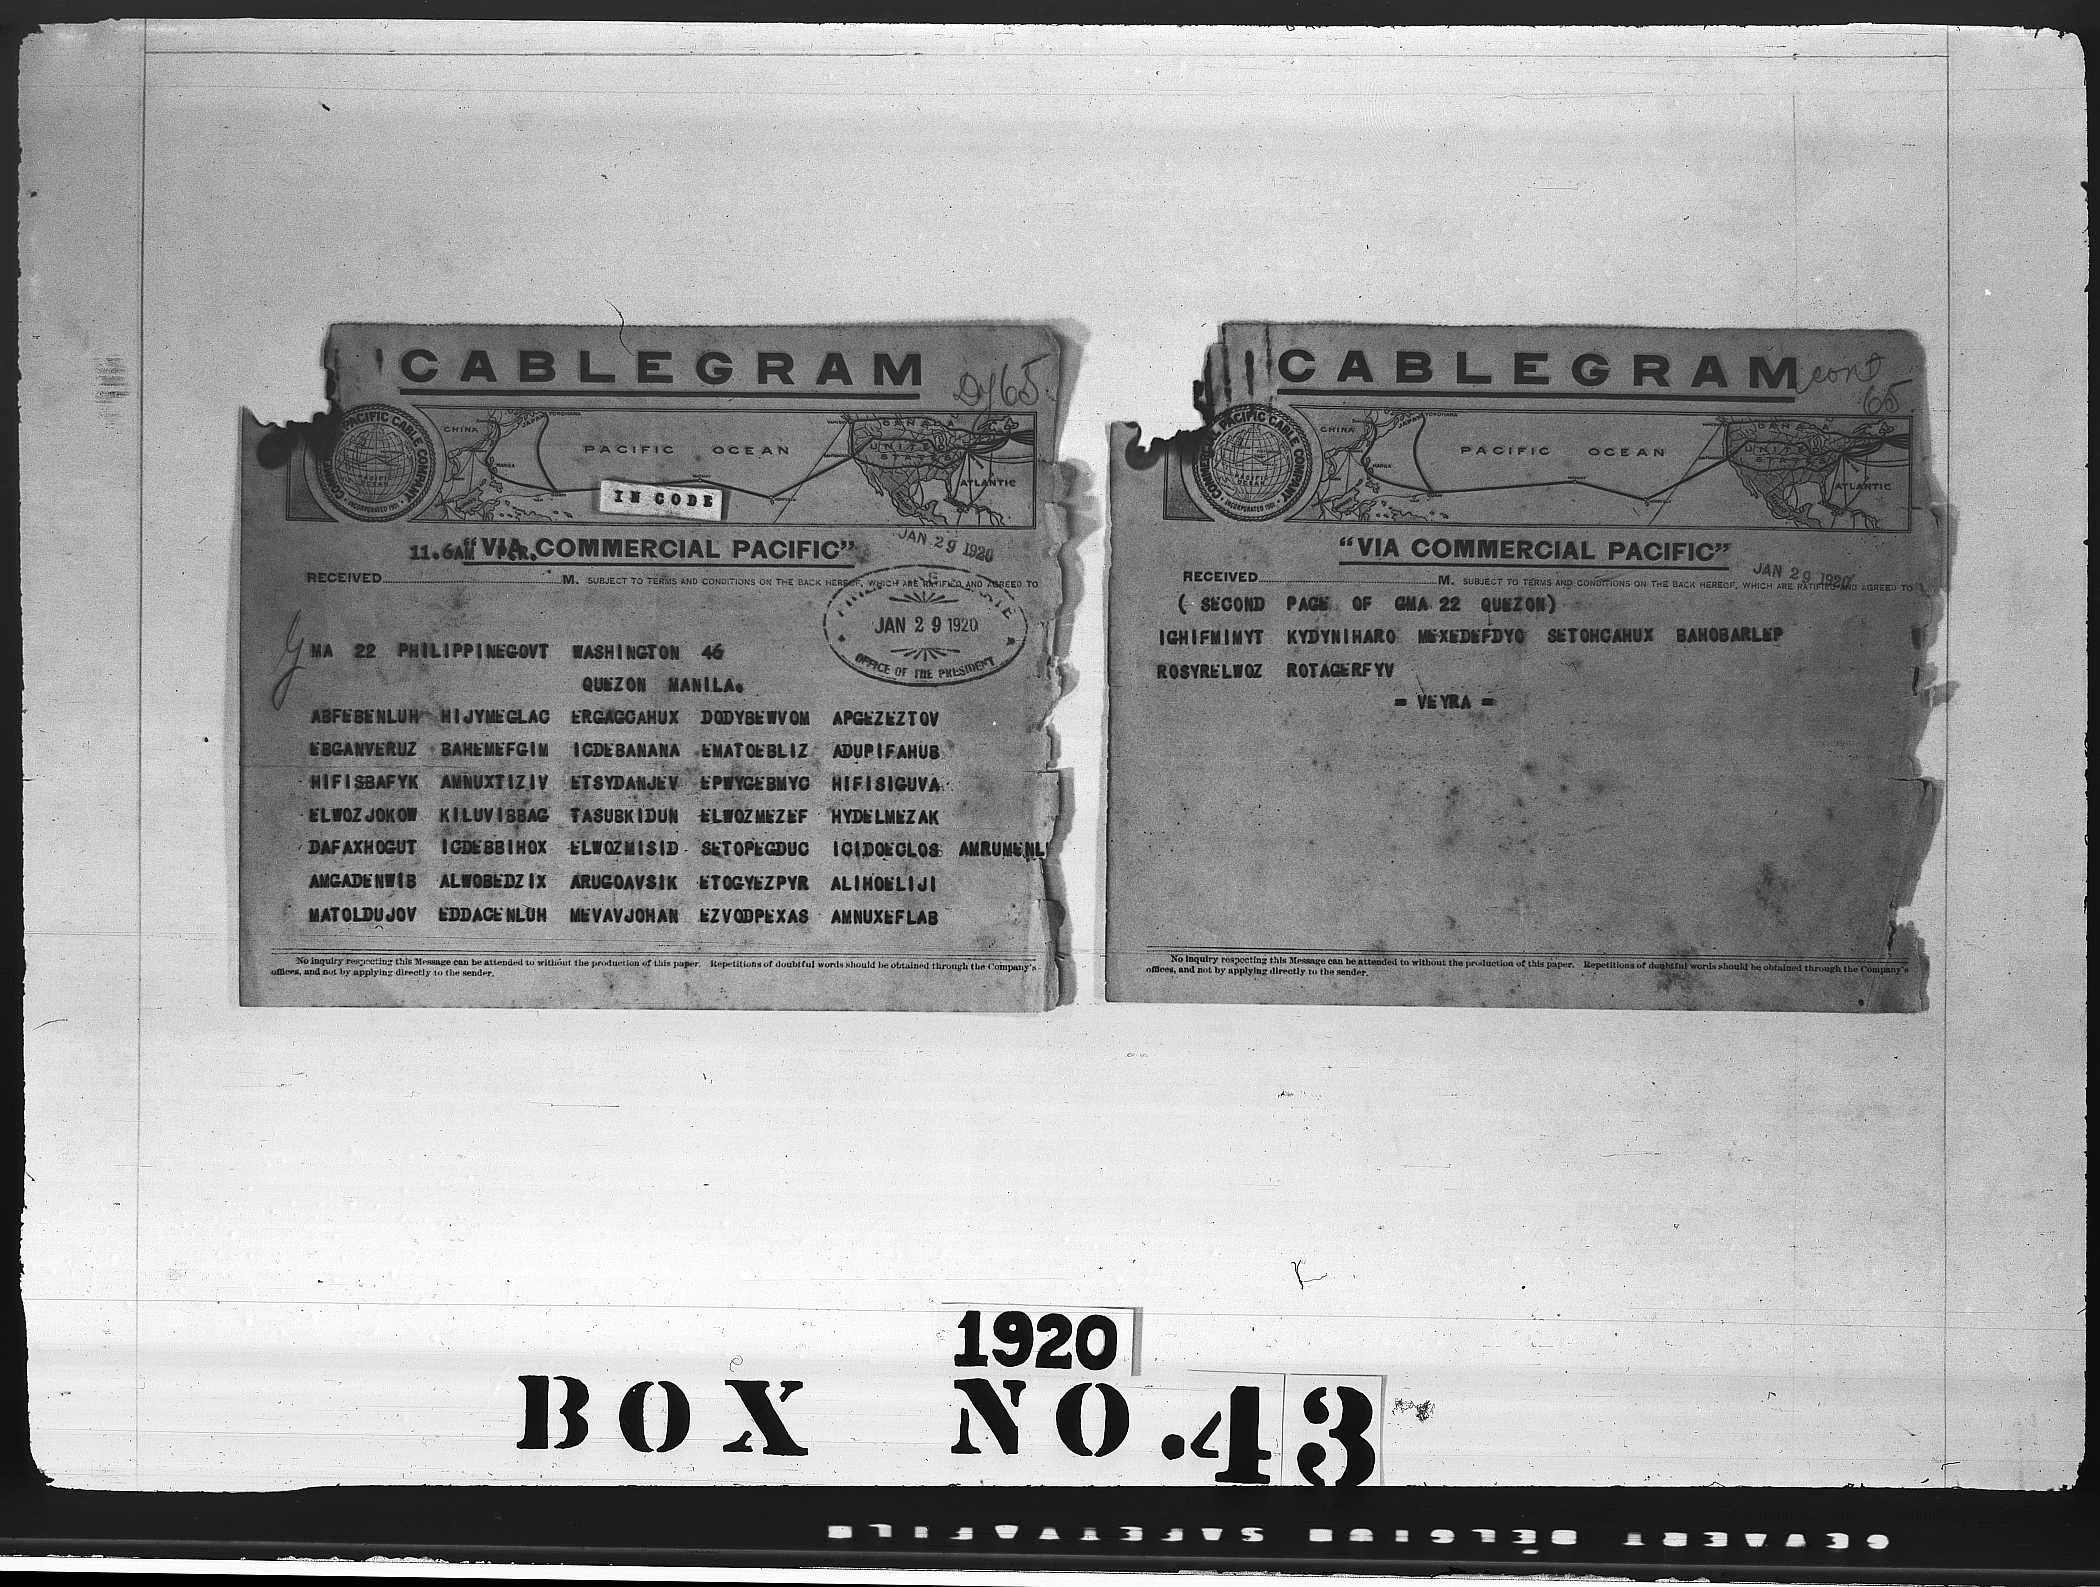 CABLEGRAM
Dy 65.
COMMERCIAL PACIFIC CABLE COMPANY
INCORPORATED 1901
CHINA
JAPAN
YOKOHAMA
MANILA
PACIFIC OCEAN
CANADA
UNITED STATES
ATLANTIC
IN CODE
11.6AM PCR.
"VIA COMMERCIAL PACIFIC"
JAN 29 1920
RECEIVED M. SUBJECT TO TERMS AND CONDITIONS ON THE BACK HEREOF, WHICH ARE RATIFIED AND AGREED TO
JAN 29 1920
OFFICE OF THE PRESIDENT
GMA 22 PHILIPPINEGOVT WASHINGTON 46
QUEZON MANILA.
ABFEBENLUH HIJYMEGLAC ERGAGCAHUX DODYBEWVOM APGEZEZTOV
EBGANVERUZ BAHEMEFGIM ICDEBANANA EMATOEBLIZ ADUPIFAHUB
HIFISBAFYK AMNUXTIZIV ETSYDANJEV EPWYGEBMYC HIFISIGUVA
ELWOZJOKOW KILUVIBBAG TASUBKIDUN ELWOZMEZEF HYDELMEZAK
DAFAXHOGUT ICDEBBIHOX ELWOZMISID SETOPEGDUC ICIDOECLOS AMRUMENL
AMGADENWIB ALWOBEDZIX ARUGOAVSIK ETOGYEZPYR ALIHOELIJI
MATOLDUJOV EDDACENLUH MEVAVJOHAN EZVODPEXAS AMNUXEFLAB
No inquiry respecting this Message can be attended to without the production of this paper. Repetitions of doubtful words should be obtained through the Company's
offices, and not by applying directly to the sender.
CABLEGRAM
cont
65
COMMERCIAL PACIFIC CABLE COMPANY
INCORPORATED 1901
CHINA
JAPAN
YOKOHAMA
MANILA
PACIFIC OCEAN
CANADA
UNITED STATES
ATLANTIC
"VIA COMMERCIAL PACIFIC"
JAN 29 1920
RECEIVED M. SUBJECT TO TERMS AND CONDITIONS ON THE BACK HEREOF, WHICH ARE RATIFIED AND AGREED TO
( SECOND PAGE OF GMA 22 QUEZON)
IGHIFMIMYT KYDYNIHARO MEXEDEFDYO SETOHCAHUX BAHOBARLEP
ROSYRELWOZ ROTAGERFYV
= VEYRA =
No inquiry respecting this Message can be attended to without the production of this paper. Repetitions of doubtful words should be obtained through the Company's
offices, and not by applying directly to the sender.
1920
BOX NO.43
GEVAERT BELGIUM SAFETY FILM